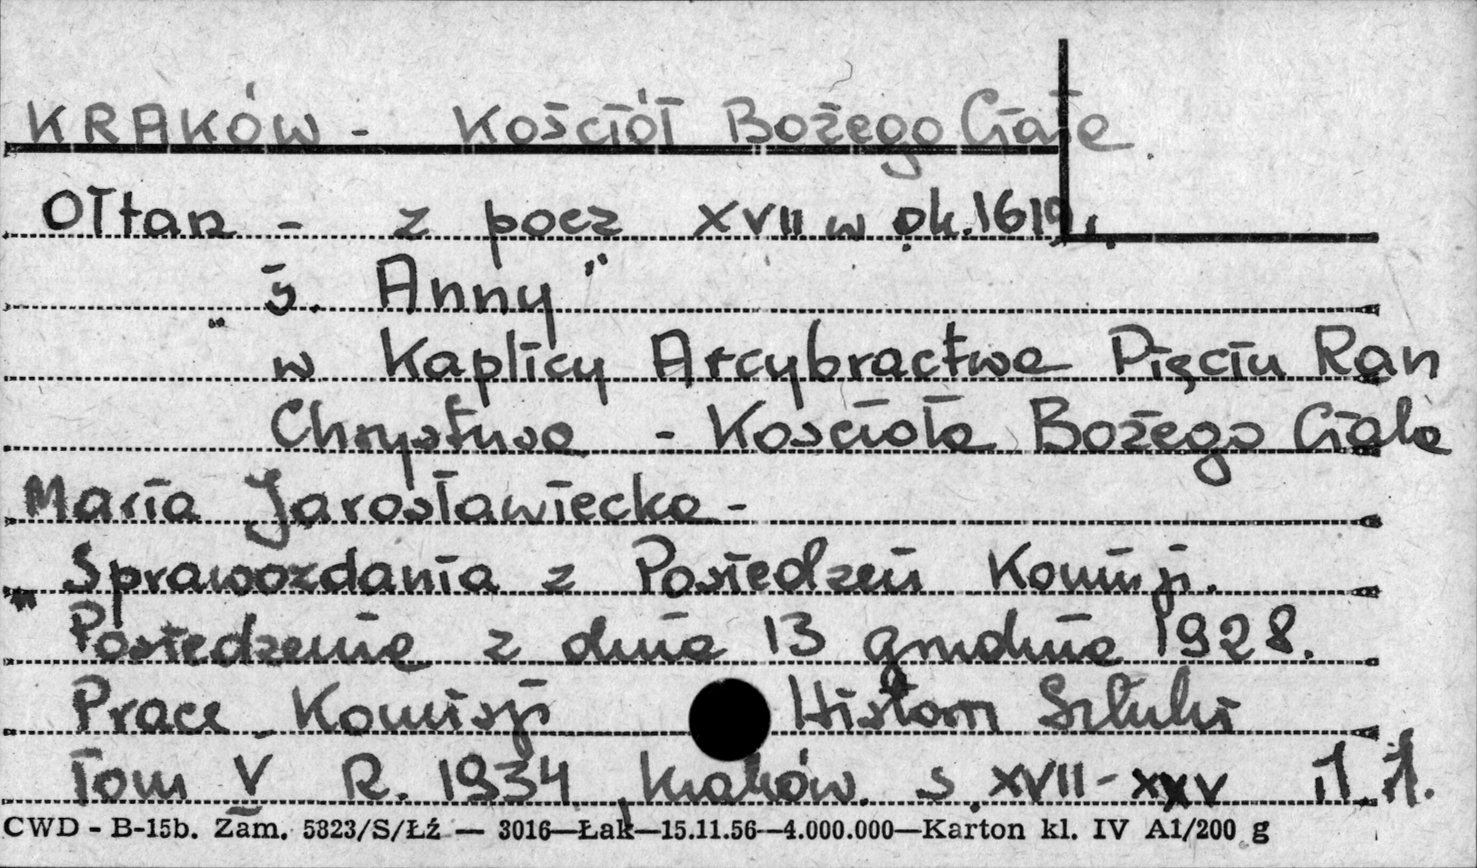 KRAKÓW - Kościół Bożego Ciała.
Ołtarz - z pocz XVII w ok. 1619 r.
Ś. Anny"
" w Kaplicy Arcybractwa Pięciu Ran
Chrystusa - Kościoła Bożego Ciała
Maria Jarosławiecka -
" Sprawozdania z Posiedzeń Komisji.
Posiedzenie z dnia 13 grudnia 1928.
Prace Komisji Historii Sztuki
Tom V R. 1934, Kraków. s. XVII-XXV
CWD - B-15b. Zam. 5823/S/Łź — 3016—Łak—15.11.56—4.000.000—Karton kl. IV A1/200 g